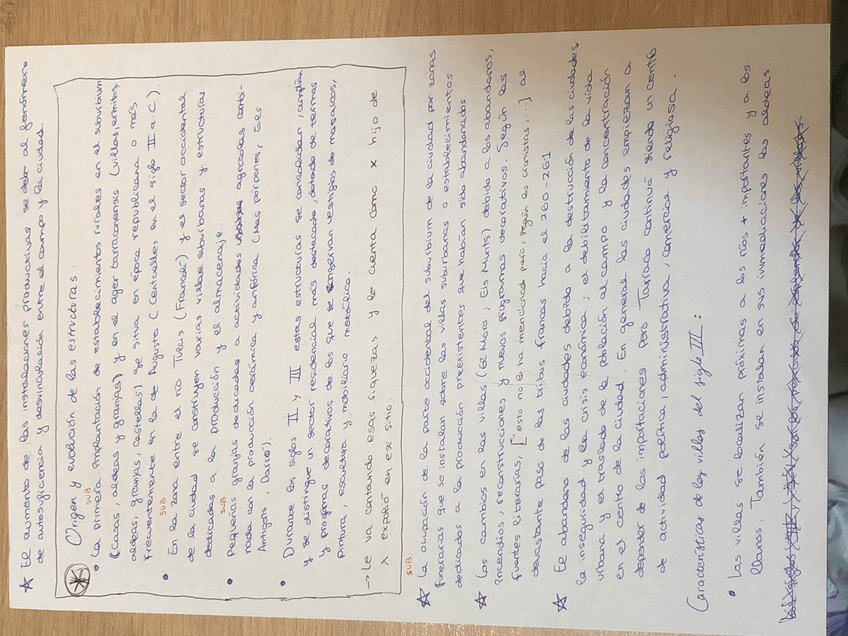 ☆ El aumento de las instalaciones productivas se debe al fenómeno
de autosuficiencia y desvinculación entre el campo y la ciudad.
Origen y evolución de las estructuras:
SUB
• La primera implantación de establecimientos rurales en el suburbium
(casas, aldeas y granjas) y en el ager tarraconensis (villas, ermitas,
aldeas, granjas, castellas) se sitúa en época republicana o más
frecuentemente en la de Augusto (Centcelles en el siglo II a.C).
SUB
• En la zona entre el río Tulcis (Francolí) y el sector occidental
de la ciudad se construyen varias villae suburbanas y estructuras
dedicadas a la producción y el almacenaje.
SUB
• Pequeñas granjas dedicadas a actividades agrícolas combi-
nada con la producción cerámica y anfórica (Mas pórpores, Els
Antigons, Darró).
• Durante los siglos II y III estas estructuras se consolidan, amplían
y se distingue un sector residencial más destacado, dotado de termas
y programas decorativos de los que se conservan vestigios de mosaicos,
pintura, escultura y mobiliario metálico.
→ Le va contando esas riquezas y le cuenta como x hijo de
x expolió en ese sitio.
SUB
☆ La ocupación de la parte occidental del suburbium de la ciudad por zonas
funerarias que se instalan sobre las villas suburbanas o establecimientos
dedicados a la producción preexistentes que habían sido abandonados
☆ Los cambios en las villas (El Moro; Els Munts) debido a los abandonos,
incendios, reconstrucciones y nuevos programas decorativos. Según las
fuentes literarias, [*esto no lo ha mencionado pero, según los cronistas,...] al
devastante paso de las tribus francas hacia el 260-261
☆ El abandono de las ciudades debido a la destrucción de las ciudades,
la inseguridad y la crisis económica; el debilitamiento de la vida
urbana y el traslado de la población al campo y la concentración
en el centro de la ciudad. En general las ciudades empiezan a
depender de las importaciones pero Tarraco continuó siendo un centro
de actividad política, administrativa, comercial y religiosa.
Características de las villas del siglo III:
• Las villas se localizan próximas a los ríos + importantes y a los
llanos. También se instalan en sus inmediaciones las aldeas.